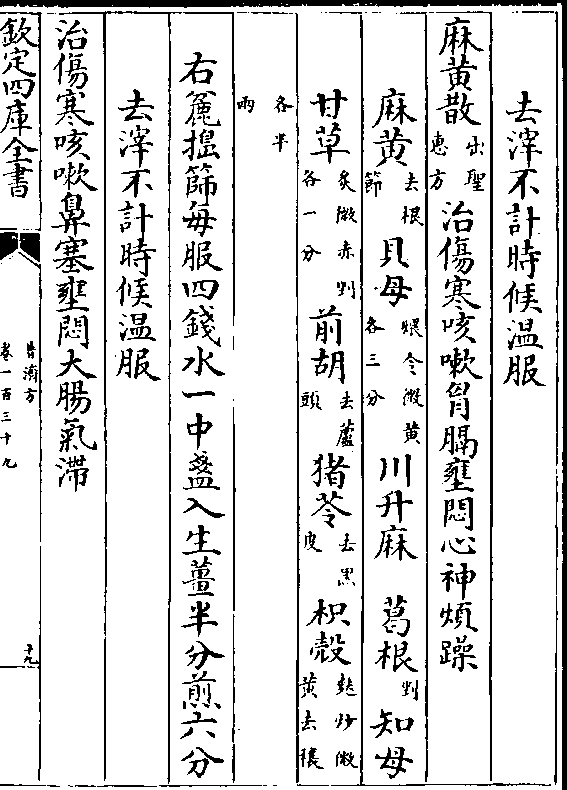 去滓不計時候温服
麻黄散出聖惠方治傷寒咳嗽胷膈壅悶心神煩躁
麻黄去根節貝母煨令微黄各三分川升麻葛根剉知母
甘草炙微赤剉各一分前胡去蘆頭猪苓去黒皮枳殻麩炒微黄去穰
各半兩
右簏搵篩每服四錢水一中盞入生薑半分煎六分
去滓不計時候温服
治傷寒咳嗽鼻塞壅悶大腸氣滯
欽定四庫全書
普濟方
卷一百三十九
十九